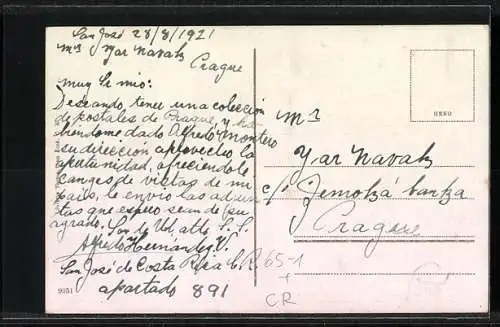 San José 28/8/1921
Mr Yar Navak
Prague
Muy Sr mio:
Deseando, tener una coleccion
de postales de Prague, y ha-
biéndome dado Alfredo Montero
su dirección aprovecho la
oportunidad, ofreciendole
canges de vistas de mi
país, le envio las adjun-
tas que espero sean de su
agrado. Soy de Ud. atto. S. S.
Alfredo Hernandez V.
San José de Costa Rica C. R.
apartado 891
9351
Mr
Yar Navak
c/o
Prague
65-1
+
CR